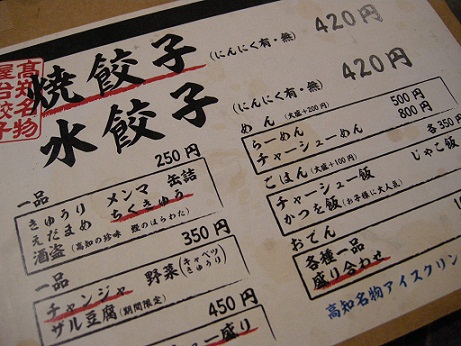 高知名物
屋台餃子
焼餃子 (にんにく有・無) 420円
水餃子 (にんにく有・無) 420円
めん (大盛+200円)
らーめん 500円
チャーシューめん 800円
ごはん (大盛+100円) 各350
チャーシュー飯 じゃこ飯
かつを飯 (お子様に大人気)
おでん
各種一品
盛り合わせ
高知名物アイスクリン
一品 250円
きゅうり メンマ 缶詰
えだまめ ちくきゅう
酒盗 (高知の珍味 鰹のはらわた)
一品 350円
チャンジャ 野菜 (キャベツ きゅうり)
ザル豆腐 (期間限定)
450円
盛り